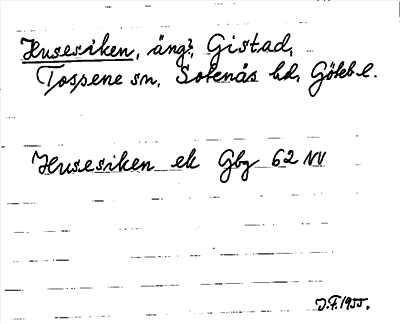 Husesiken, äng?, Gistad,
Tossene sn, Sotenäs hd, Göteb l.
Husesiken ek Gbg 62 NV
J.F. 1955.